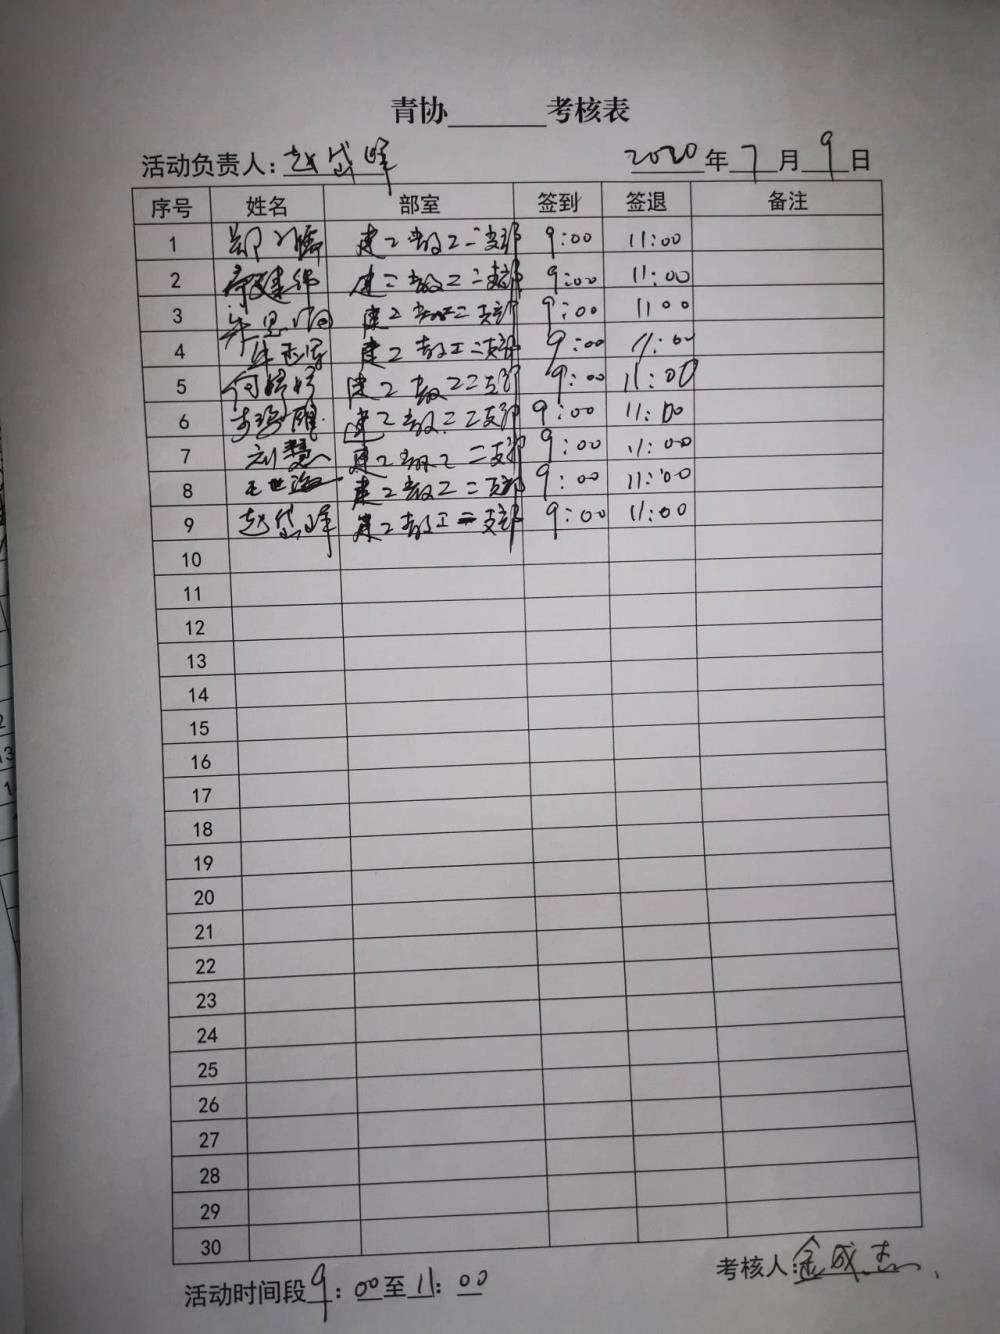 青协______考核表
活动负责人：赵岱峰 2020年7月9日
序号 姓名 部室 签到 签退 备注
1 郑 建工教工二支部 9:00 11:00
2 建工教工二支部 9:00 11:00
3 建工教工二支部 9:00 11:00
4 建工教工二支部 9:00 11:00
5 何婷婷 建工教工二支部 9:00 11:00
6 建工教工二支部 9:00 11:00
7 刘慧 建工教工二支部 9:00 11:00
8 王世海 建工教工二支部 9:00 11:00
9 赵岱峰 建工教工二支部 9:00 11:00
10
11
12
13
14
15
16
17
18
19
20
21
22
23
24
25
26
27
28
29
30
活动时间段9:00至11:00 考核人：金成杰